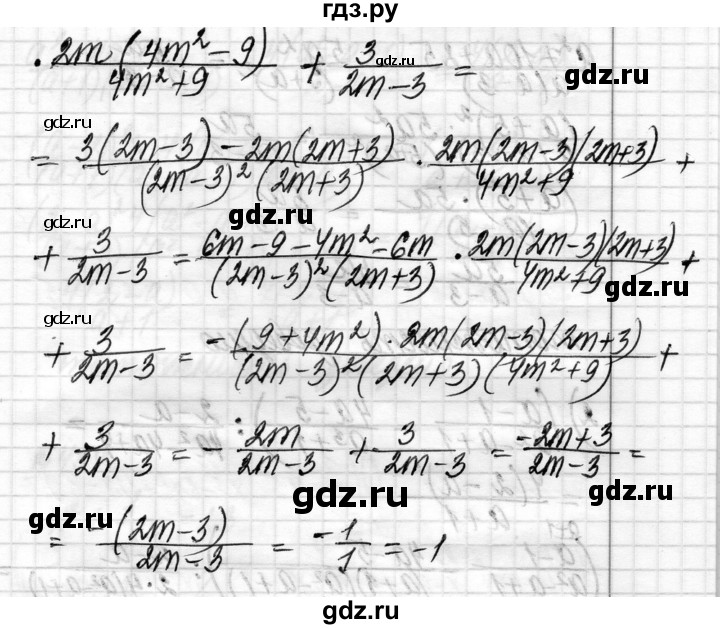 гдз.ру
· 2m(4m²−9)/(4m²+9) + 3/(2m−3) =
gdz.ru
gdz.ru
= (3(2m−3) − 2m(2m+3))/((2m−3)²(2m+3)) · 2m(2m−3)(2m+3)/(4m²+9) +
gdz.ru
gdz.ru
+ 3/(2m−3) = (6m−9−4m²−6m)/((2m−3)²(2m+3)) · 2m(2m−3)(2m+3)/(4m²+9) +
gdz.ru
gdz.ru
+ 3/(2m−3) = −(9+4m²)·2m(2m−3)(2m+3)/((2m−3)²(2m+3)(4m²+9)) +
gdz.ru
+ 3/(2m−3) = − 2m/(2m−3) + 3/(2m−3) = (−2m+3)/(2m−3) =
gdz.ru
gdz.ru
gdz.ru
= −(2m−3)/(2m−3) = −1/1 = −1
gdz.ru